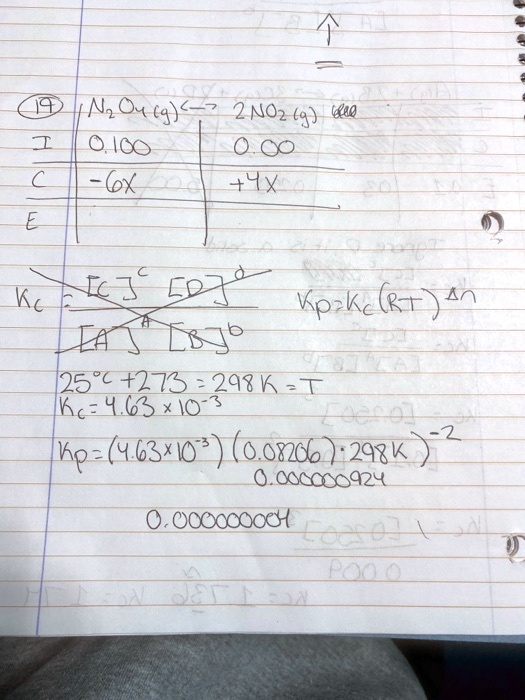 19 N2O4(g) <-> 2NO2(g)
I 0.100 0.00
C -6x +4x
E
Kc = [C]^c [D]^d / [A]^A [B]^b
Kp=Kc(RT)^Δn
25°C +273 = 298K = T
Kc = 4.63 x 10^-3
Kp = (4.63x10^-3) (0.08206)·298K)^-2
0.000000924
0.000000004